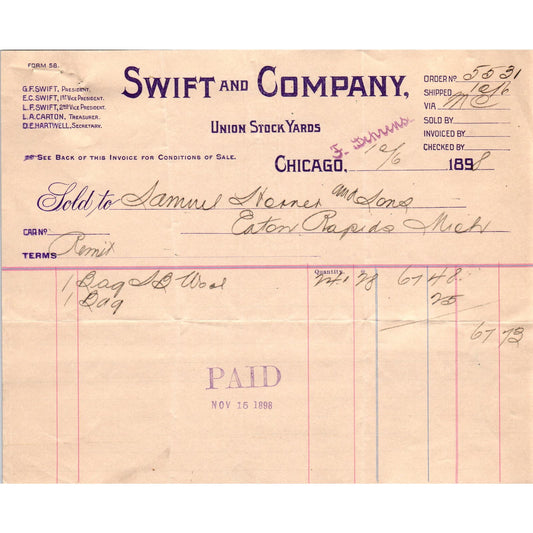 FORM 58.
SWIFT AND COMPANY,
G.F. SWIFT, PRESIDENT.
E.C. SWIFT, 1ST VICE PRESIDENT.
L.F. SWIFT, 2ND VICE PRESIDENT.
L.A. CARTON, TREASURER.
D.E. HARTWELL, SECRETARY.
UNION STOCK YARDS
ORDER No 5531
SHIPPED 10/6
VIA MC
SOLD BY
INVOICED BY
CHECKED BY
SEE BACK OF THIS INVOICE FOR CONDITIONS OF SALE.
CHICAGO, 10/6 1898
Sold to Samuel Horner and Sons
Eaton Rapids Mich
CAR No
TERMS Remit
Quantity
1 Bag Wool 28 67 48
1 Bag 25
67 73
PAID
NOV 16 1898